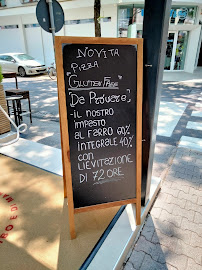 NOVITA
PIZZA
"GLUTEN FREE"
De Provare!
-IL NOSTRO
IMPASTO
AL FARRO 60%
INTEGRALE 40%
CON
LIEVITAZIONE
DI 72 ORE